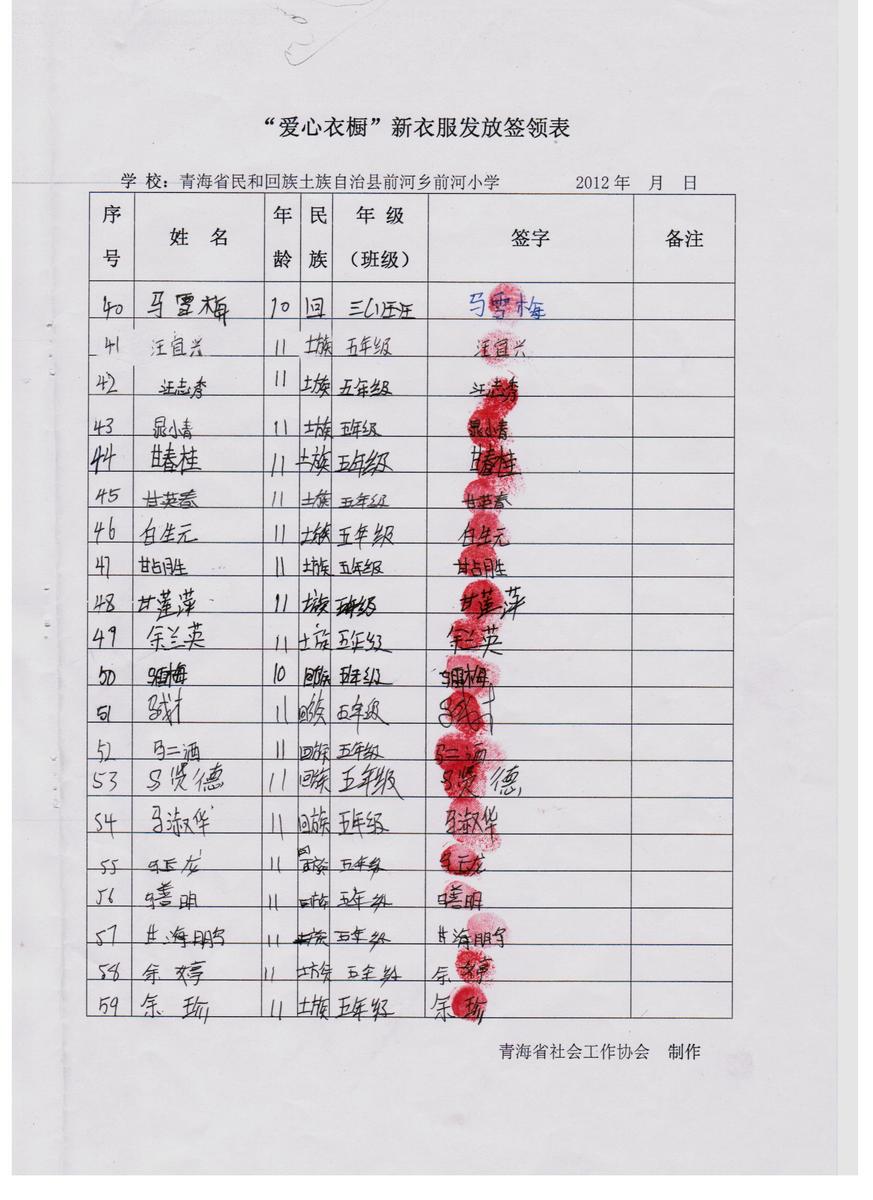 “爱心衣橱”新衣服发放签领表
学 校：青海省民和回族土族自治县前河乡前河小学 2012年 月 日
序号 姓 名 年龄 民族 年 级（班级） 签字 备注
40 马雪梅 10 回 三(1)班 马雪梅
41 汪宜兴 11 土族 五年级 汪宜兴
42 汪志秀 11 土族 五年级 汪志秀
43 晁小青 11 土族 五年级 晁小青
44 甘春桂 11 土族 五年级 甘春桂
45 甘英春 11 土族 五年级 甘英春
46 白生元 11 土族 五年级 白生元
47 甘占胜 11 土族 五年级 甘占胜
48 甘莲萍 11 土族 五年级 甘莲萍
49 余兰英 11 土族 五年级 余兰英
50 10 回族 五年级
51 11 回族 五年级
52 马二洒 11 回族 五年级 马二洒
53 马贤德 11 回族 五年级 马贤德
54 马淑华 11 回族 五年级 马淑华
55 11 回族 五年级
56 马善明 11 回族 五年级 马善明
57 甘海鹏 11 土族 五年级 甘海鹏
58 余婷 11 土族 五年级 余婷
59 余珍 11 土族 五年级 余珍
青海省社会工作协会 制作